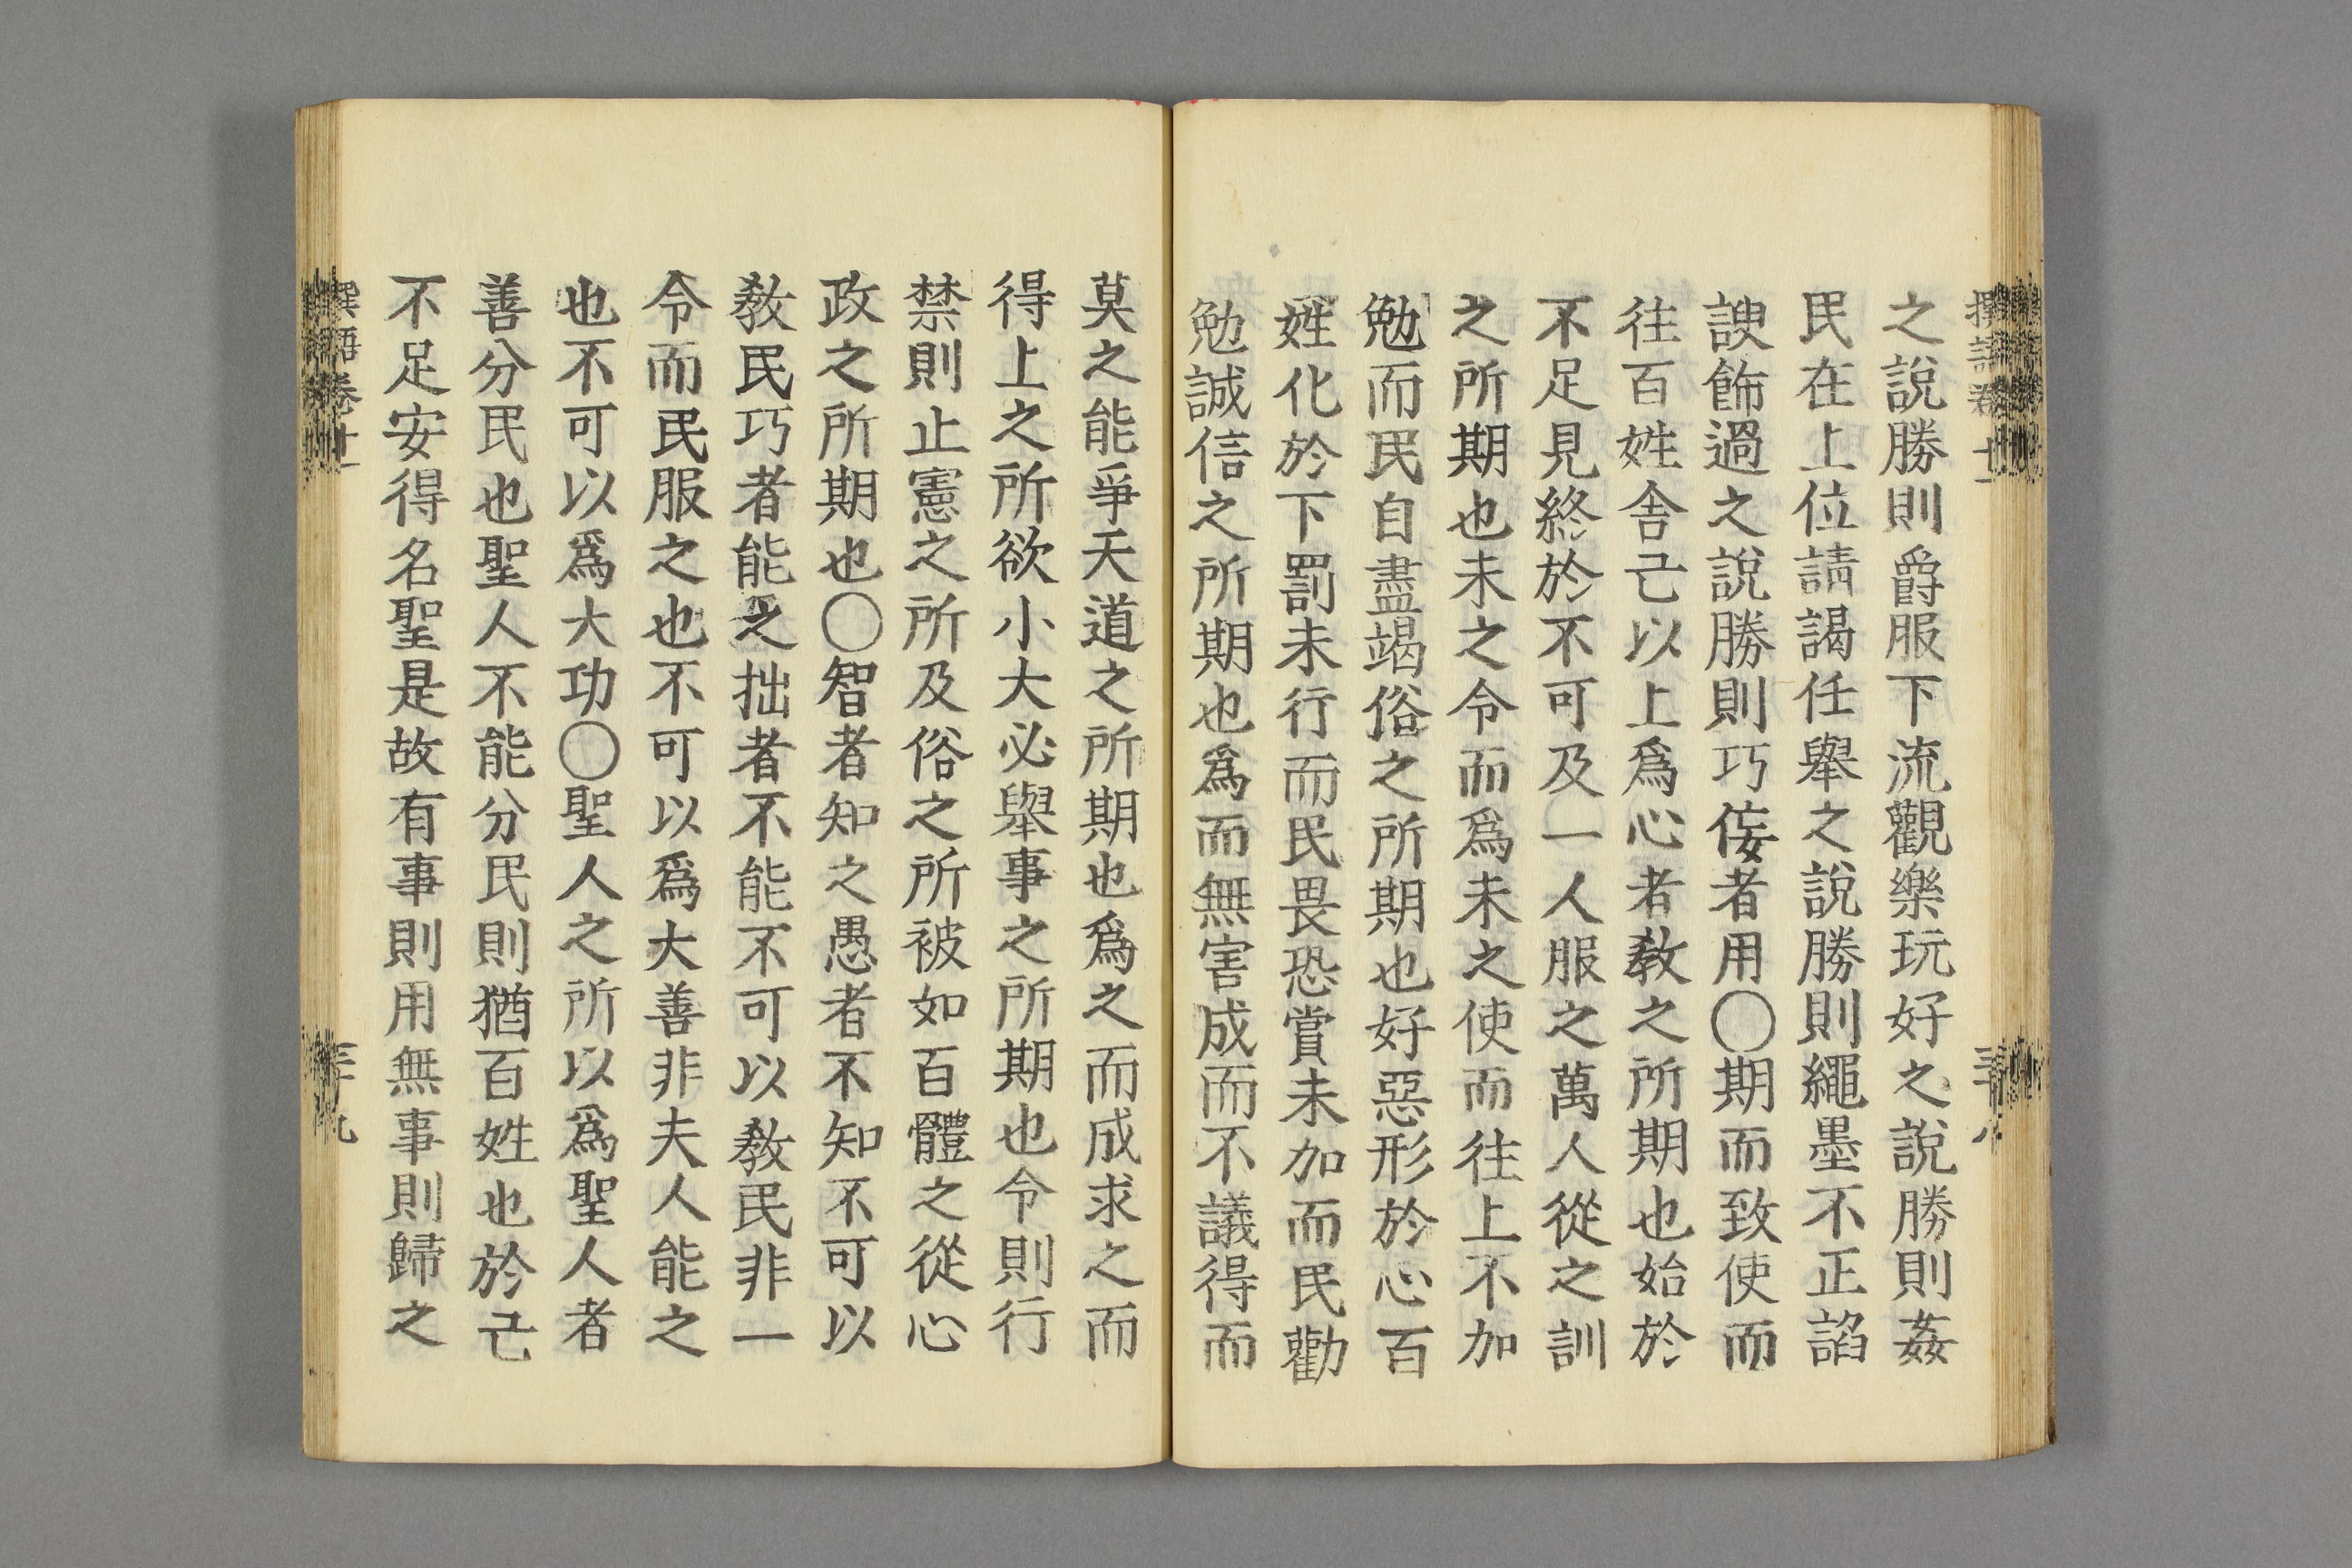 撰語卷十一
三十八
之說勝則爵服下流觀樂玩好之說勝則姦
民在上位請謁任舉之說勝則繩墨不正諂
諛飾過之說勝則巧佞者用〇期而致使而
往百姓舍己以上爲心者敎之所期也始於
不足見終於不可及一人服之萬人從之訓
之所期也未之令而爲未之使而往上不加
勉而民自盡竭俗之所期也好惡形於心百
姓化於下罰未行而民畏恐賞未加而民勸
勉誠信之所期也爲而無害成而不議得而
莫之能爭天道之所期也爲之而成求之而
得上之所欲小大必舉事之所期也令則行
禁則止憲之所及俗之所被如百體之從心
政之所期也〇智者知之愚者不知不可以
敎民巧者能之拙者不能不可以敎民非一
令而民服之也不可以爲大善非夫人能之
也不可以爲大功〇聖人之所以爲聖人者
善分民也聖人不能分民則猶百姓也於己
不足安得名聖是故有事則用無事則歸之
撰語卷十一
三十九